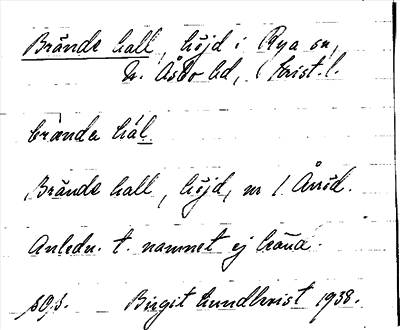 Brände hall, höjd i Rya sn,
N. Åsbo hd, Krist. l.
brända hál
Brände hall, höjd, nr 1 Åröd.
Anledn. t. namnet ej känd.
Birgit Lundkvist 1938.